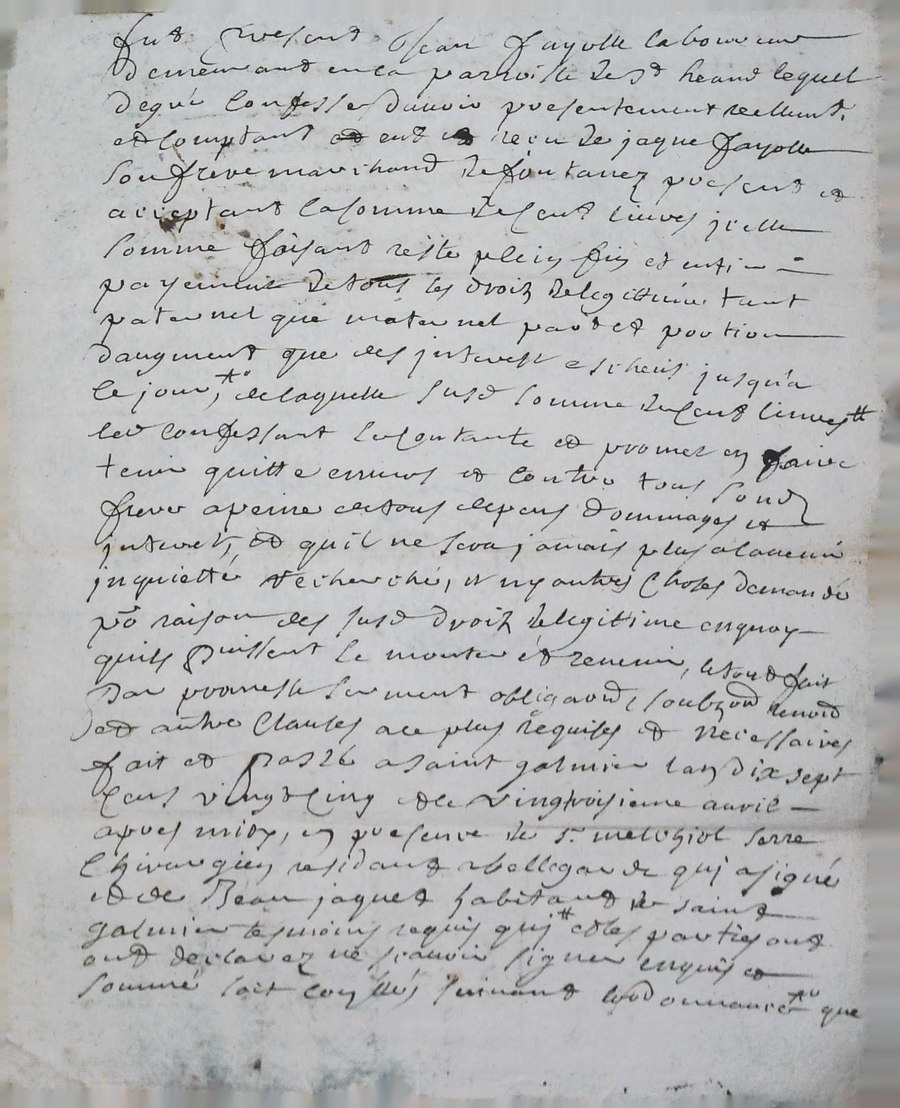 fut present Jean fayolle laboureur
demeurant en la parroisse de St heand lequel
degré confesse davoir presentement reellemt.
et comptant et eut reçu de jaque fayolle
son frere marchand de fontanez present et
acceptant la somme de cent livres jcelle
somme faisant reste plein fin et entier
payement de tous les droit de legittime tant
paternel que maternel part et portion
daugment que des jnterest escheus jusqua
ce jour, de laquelle susd somme de cent livres
led confessant se contante et promet en faire
tenir quitte envers et contre tous sond
frere a peine de tous depens dommages et
jnterets, et quil ne sera jamais plus alavenir
jnquietté recherché, ny autres choses demandé
pr raison des susd droit de legittime en quoy
quils puissent se monter et revenir, le tout fait
par promesse serment obligaon, soubzon renon
et autre clauses a ce plus requises et necessaires
fait et passé a saint galmier lan dix sept
cens vingt cinq et le vingtroisieme avril
apres midy, en presence de Sr melchiol serre
chirurgien residant a bellegarde qui a signé
et de Jean jaquet habitant de saint
galmier tesmoins requis quj et les parties ont
ont declarez ne scavoir signer enquis et
sommé soit suivant lordonnance que